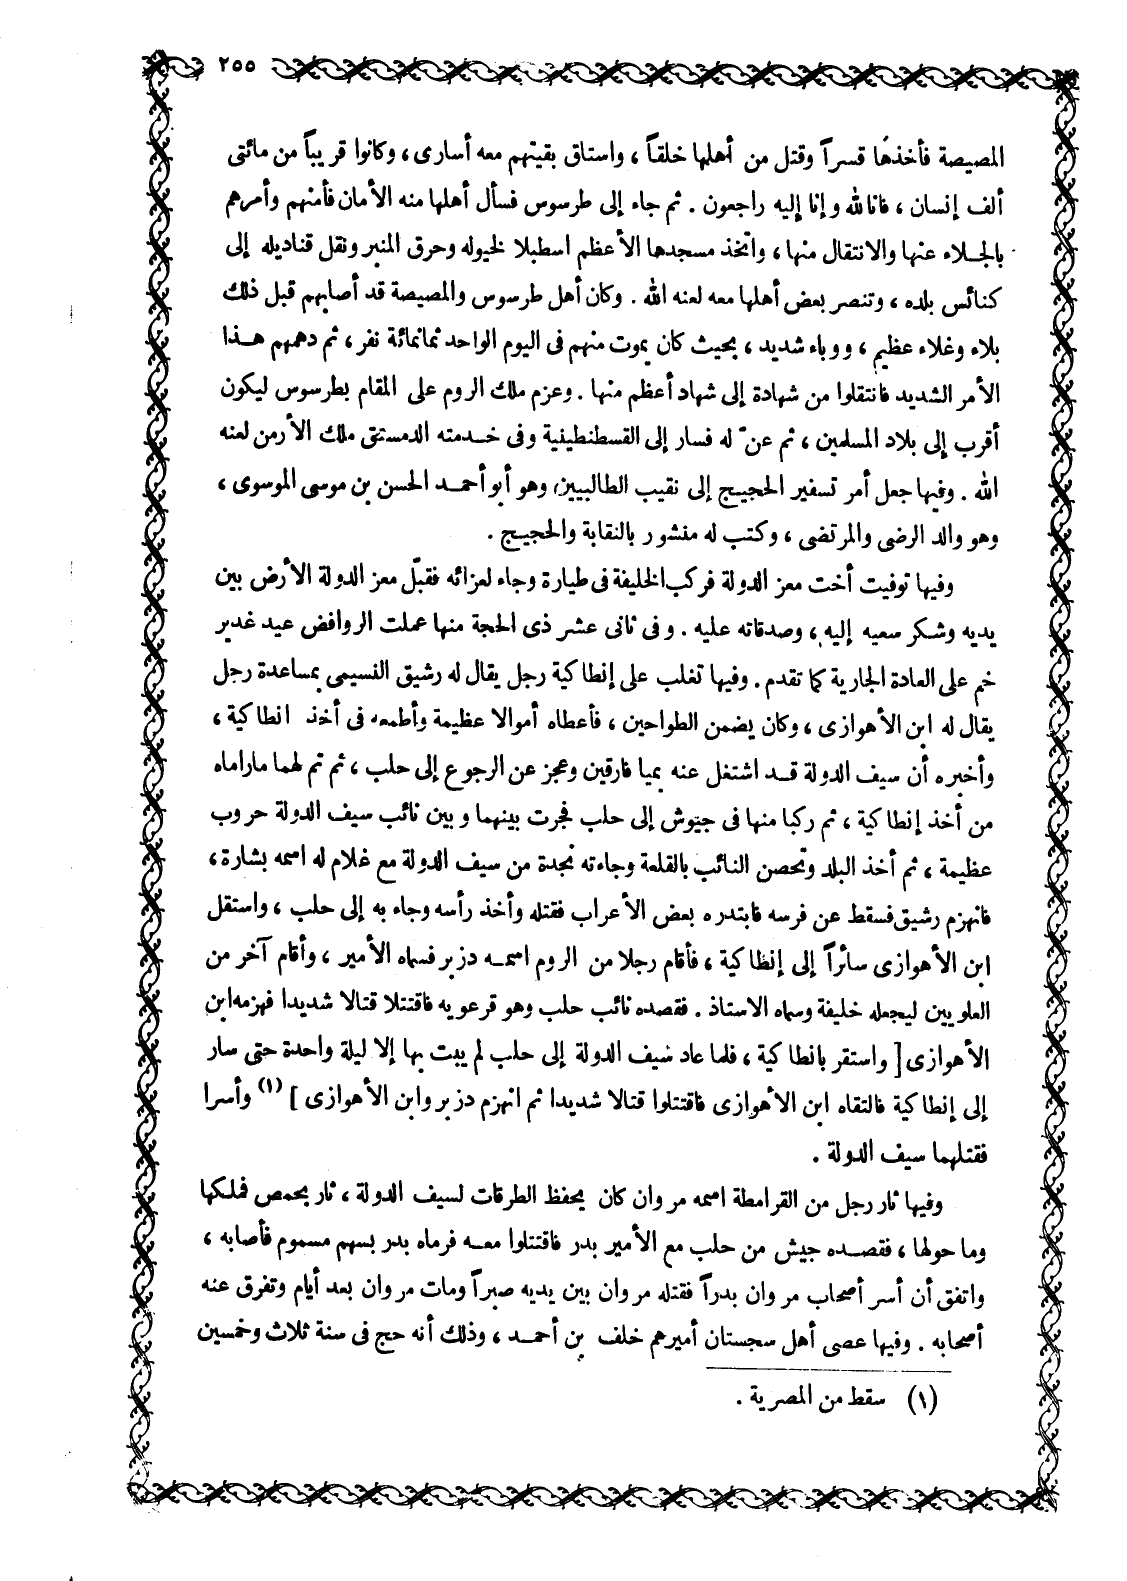 ٢٥٥
المصيصة فأخذها قسراً وقتل من أهلها خلقاً ، واستاق بقيتهم معه أسارى ، وكانوا قريباً من مائتى
ألف إنسان ، فانا لله وإنا إليه راجعون . ثم جاء إلى طرسوس فسأل أهلها منه الأمان فأمنهم وأمرهم
بالجلاء عنها والانتقال منها ، واتخذ مسجدها الأعظم اسطبلا لخيوله وحرق المنبر ونقل قناديله إلى
كنائس بلده ، وتنصر بعض أهلها معه لعنه الله . وكان أهل طرسوس والمصيصة قد أصابهم قبل ذلك
بلاء وغلاء عظيم ، ووباء شديد ، بحيث كان يموت منهم فى اليوم الواحد ثمانمائة نفر ، ثم دهمهم هذا
الأمر الشديد فانتقلوا من شهادة إلى شهاد أعظم منها . وعزم ملك الروم على المقام بطرسوس ليكون
أقرب إلى بلاد المسلمين ، ثم عنّ له فسار إلى القسطنطيفية وفى خدمته الدمستق ملك الأرمن لعنه
الله . وفيها جعل أمر تسفير الحجيج إلى نقيب الطالبيين وهو أبو أحمد الحسن بن موسى الموسوى ،
وهو والد الرضى والمرتضى ، وكتب له منشور بالنقابة والحجيج .
وفيها توفيت أخت معز الدولة فركب الخليفة فى طيارة وجاء لعزائه فقبّل معز الدولة الأرض بين
يديه وشكر سعيه إليه ، وصدقاته عليه . وفى ثانى عشر ذى الحجة منها عملت الروافض عيد غدير
خم على العادة الجارية كما تقدم . وفيها تغلب على إنطاكية رجل يقال له رشيق النسيمى بمساعدة رجل
يقال له ابن الأهوازى ، وكان يضمن الطواحين ، فأعطاه أموالا عظيمة وأطمعه فى أخذ انطاكية ،
وأخبره أن سيف الدولة قد اشتغل عنه بميا فارقين وعجز عن الرجوع إلى حلب ، ثم تم لهما ماراماه
من أخذ إنطاكية ، ثم ركبا منها فى جيوش إلى حلب فجرت بينهما وبين نائب سيف الدولة حروب
عظيمة ، ثم أخذ البلد وتحصن النائب بالقلعة وجاءته نجدة من سيف الدولة مع غلام له اسمه بشارة ،
فانهزم رشيق فسقط عن فرسه فابتدره بعض الأعراب فقتله وأخذ رأسه وجاء به إلى حلب ، واستقل
ابن الأهوازى سائراً إلى إنطاكية ، فأقام رجلا من الروم اسمه دزبر فسماه الأمير ، وأقام آخر من
العلويين ليجعله خليفة وسماه الاستاذ . فقصده نائب حلب وهو قرعويه فاقتتلا قتالا شديدا فهزمه ابن
الأهوازى [ واستقر بانطاكية ، فلما عاد سيف الدولة إلى حلب لم يبت بها إلا ليلة واحدة حتى سار
إلى إنطاكية فالتقاه ابن الأهوازى فاقتتلوا قتالا شديدا ثم انهزم دزبر وابن الأهوازى ] (١) وأسرا
فقتلهما سيف الدولة .
وفيها ثار رجل من القرامطة اسمه مروان كان يحفظ الطرقات لسيف الدولة ، ثار بحمص فملكها
وما حولها ، فقصده جيش من حلب مع الأمير بدر فاقتتلوا معه فرماه بدر بسهم مسموم فأصابه ،
واتفق أن أسر أصحاب مروان بدراً فقتله مروان بين يديه صبراً ومات مروان بعد أيام وتفرق عنه
أصحابه . وفيها عصى أهل سجستان أميرهم خلف بن أحمد ، وذلك أنه حج فى سنة ثلاث وخمسين
(١) سقط من المصرية .